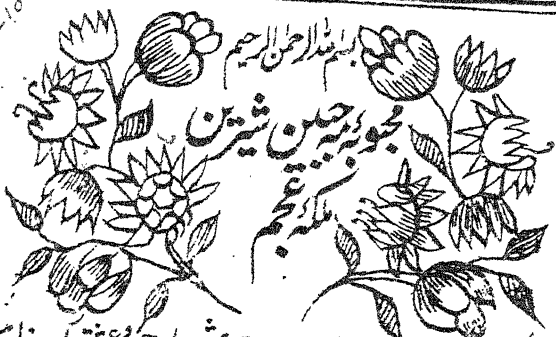 بسم اللہ الرحمن الرحیم
محبوبۂ مہ جبین شیرین
ملکۂ عجم